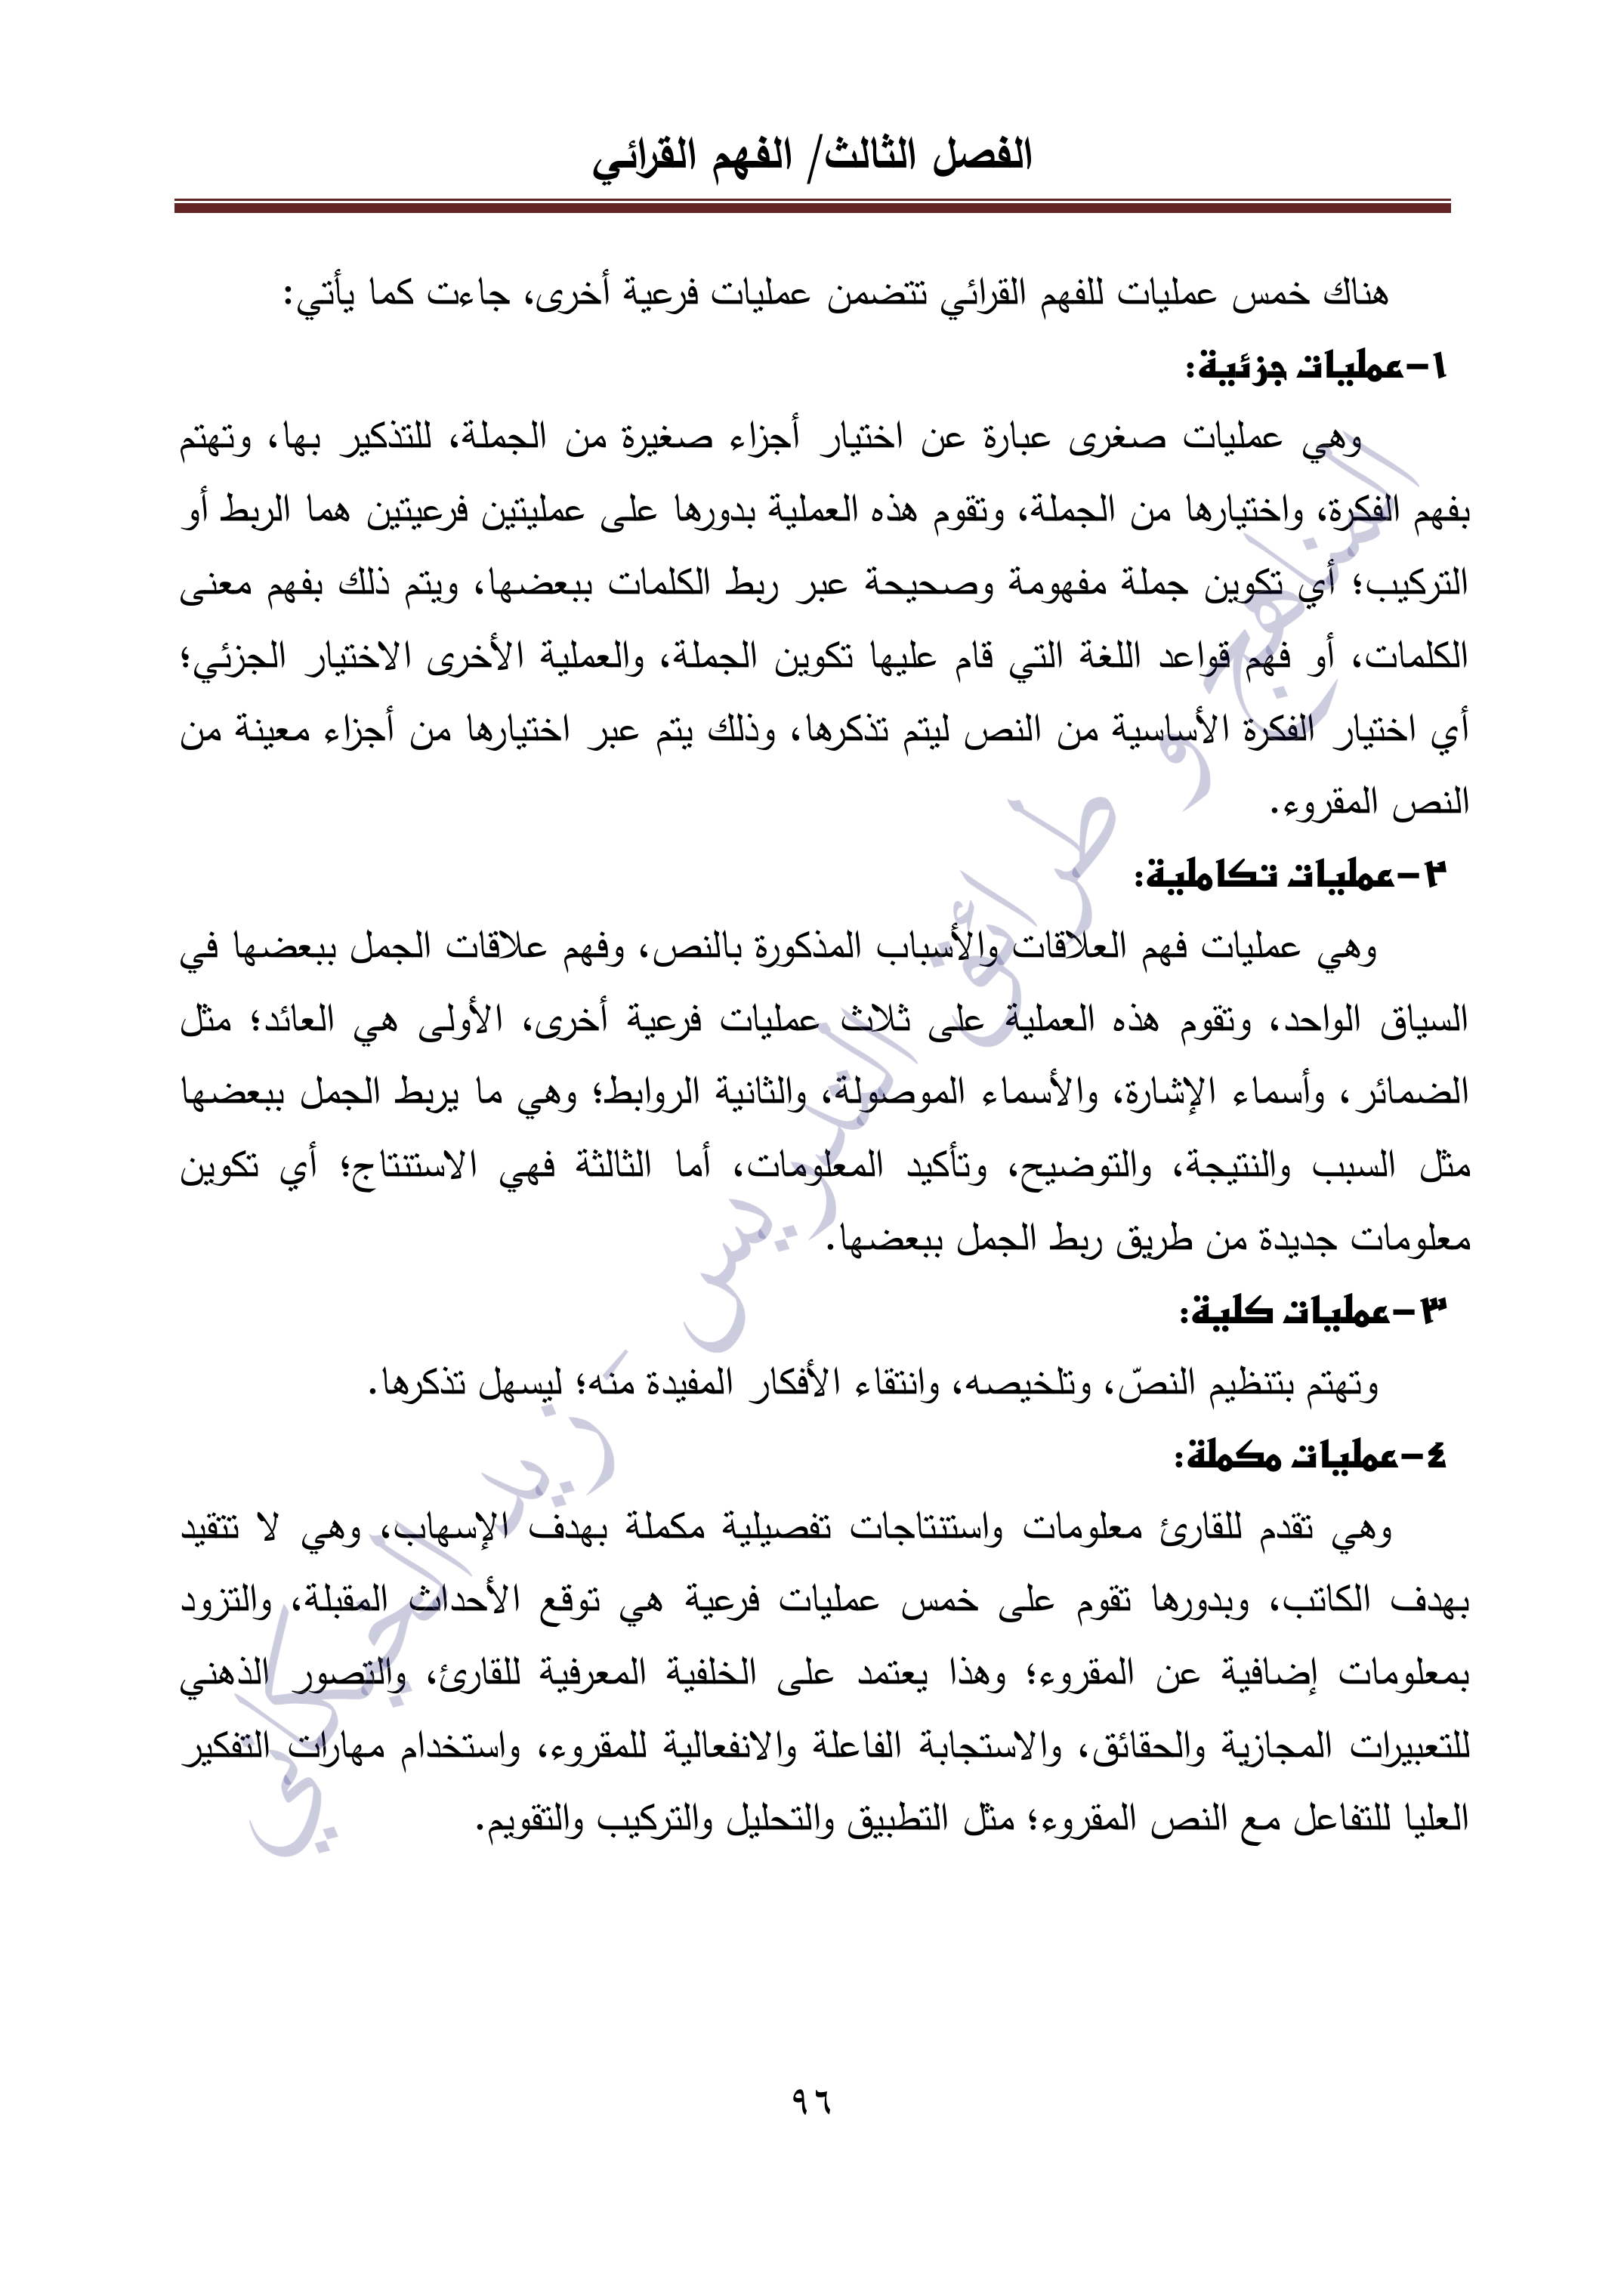 الفصل الثالث/ الفهم القرائي
هناك خمس عمليات للفهم القرائي تتضمن عمليات فرعية أخرى، جاءت كما يأتي:
١-عمليات جزئية:
وهي عمليات صغرى عبارة عن اختيار أجزاء صغيرة من الجملة، للتذكير بها، وتهتم
بفهم الفكرة، واختيارها من الجملة، وتقوم هذه العملية بدورها على عمليتين فرعيتين هما الربط أو
التركيب؛ أي تكوين جملة مفهومة وصحيحة عبر ربط الكلمات ببعضها، ويتم ذلك بفهم معنى
الكلمات، أو فهم قواعد اللغة التي قام عليها تكوين الجملة، والعملية الأخرى الاختيار الجزئي؛
أي اختيار الفكرة الأساسية من النص ليتم تذكرها، وذلك يتم عبر اختيارها من أجزاء معينة من
النص المقروء.
٢-عمليات تكاملية:
وهي عمليات فهم العلاقات والأسباب المذكورة بالنص، وفهم علاقات الجمل ببعضها في
السياق الواحد، وتقوم هذه العملية على ثلاث عمليات فرعية أخرى، الأولى هي العائد؛ مثل
الضمائر، وأسماء الإشارة، والأسماء الموصولة، والثانية الروابط؛ وهي ما يربط الجمل ببعضها
مثل السبب والنتيجة، والتوضيح، وتأكيد المعلومات، أما الثالثة فهي الاستنتاج؛ أي تكوين
معلومات جديدة من طريق ربط الجمل ببعضها.
٣-عمليات كلية:
وتهتم بتنظيم النصّ، وتلخيصه، وانتقاء الأفكار المفيدة منه؛ ليسهل تذكرها.
٤-عمليات مكملة:
وهي تقدم للقارئ معلومات واستنتاجات تفصيلية مكملة بهدف الإسهاب، وهي لا تتقيد
بهدف الكاتب، وبدورها تقوم على خمس عمليات فرعية هي توقع الأحداث المقبلة، والتزود
بمعلومات إضافية عن المقروء؛ وهذا يعتمد على الخلفية المعرفية للقارئ، والتصور الذهني
للتعبيرات المجازية والحقائق، والاستجابة الفاعلة والانفعالية للمقروء، واستخدام مهارات التفكير
العليا للتفاعل مع النص المقروء؛ مثل التطبيق والتحليل والتركيب والتقويم.
المناهج و طرائق التدريس - زيد الحيكاني
٩٦